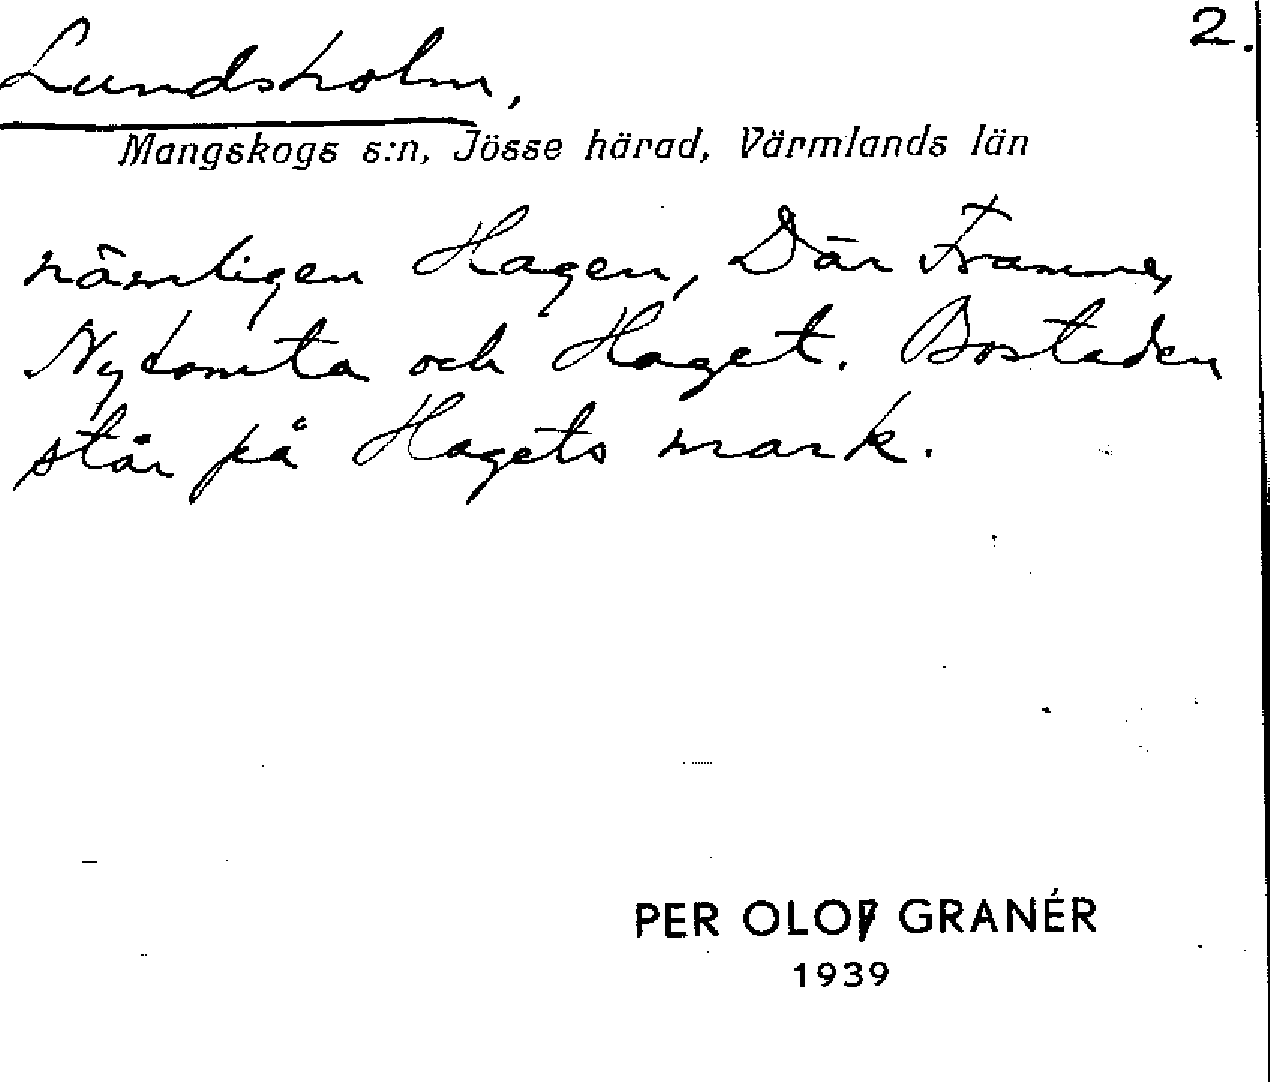 2.
Lundsholm,
Mangskogs s:n, Jösse härad, Värmlands län
nämligen Hagen, Där Framme,
Nytomta och Haget. Bostaden
står på Hagets mark.
PER OLOF GRANÉR
1939